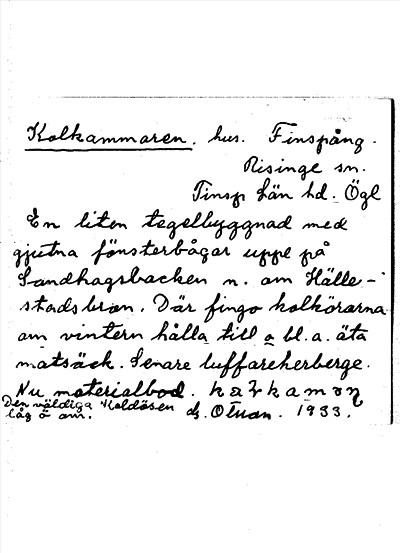 Kolkammaren. hus. Finspång.
Risinge sn.
Finsp län hd. Ögl
En liten tegelbyggnad med
gjutna fönsterbågar uppe på
Sandhagsbacken n. om Hälle-
stadsbron. Där fingo kolkörarna
om vintern hålla till o bl.a. äta
matsäck. Senare luffareherberge.
Nu materialbod.
Den väldiga Koldösen
låg ö om. 1933.